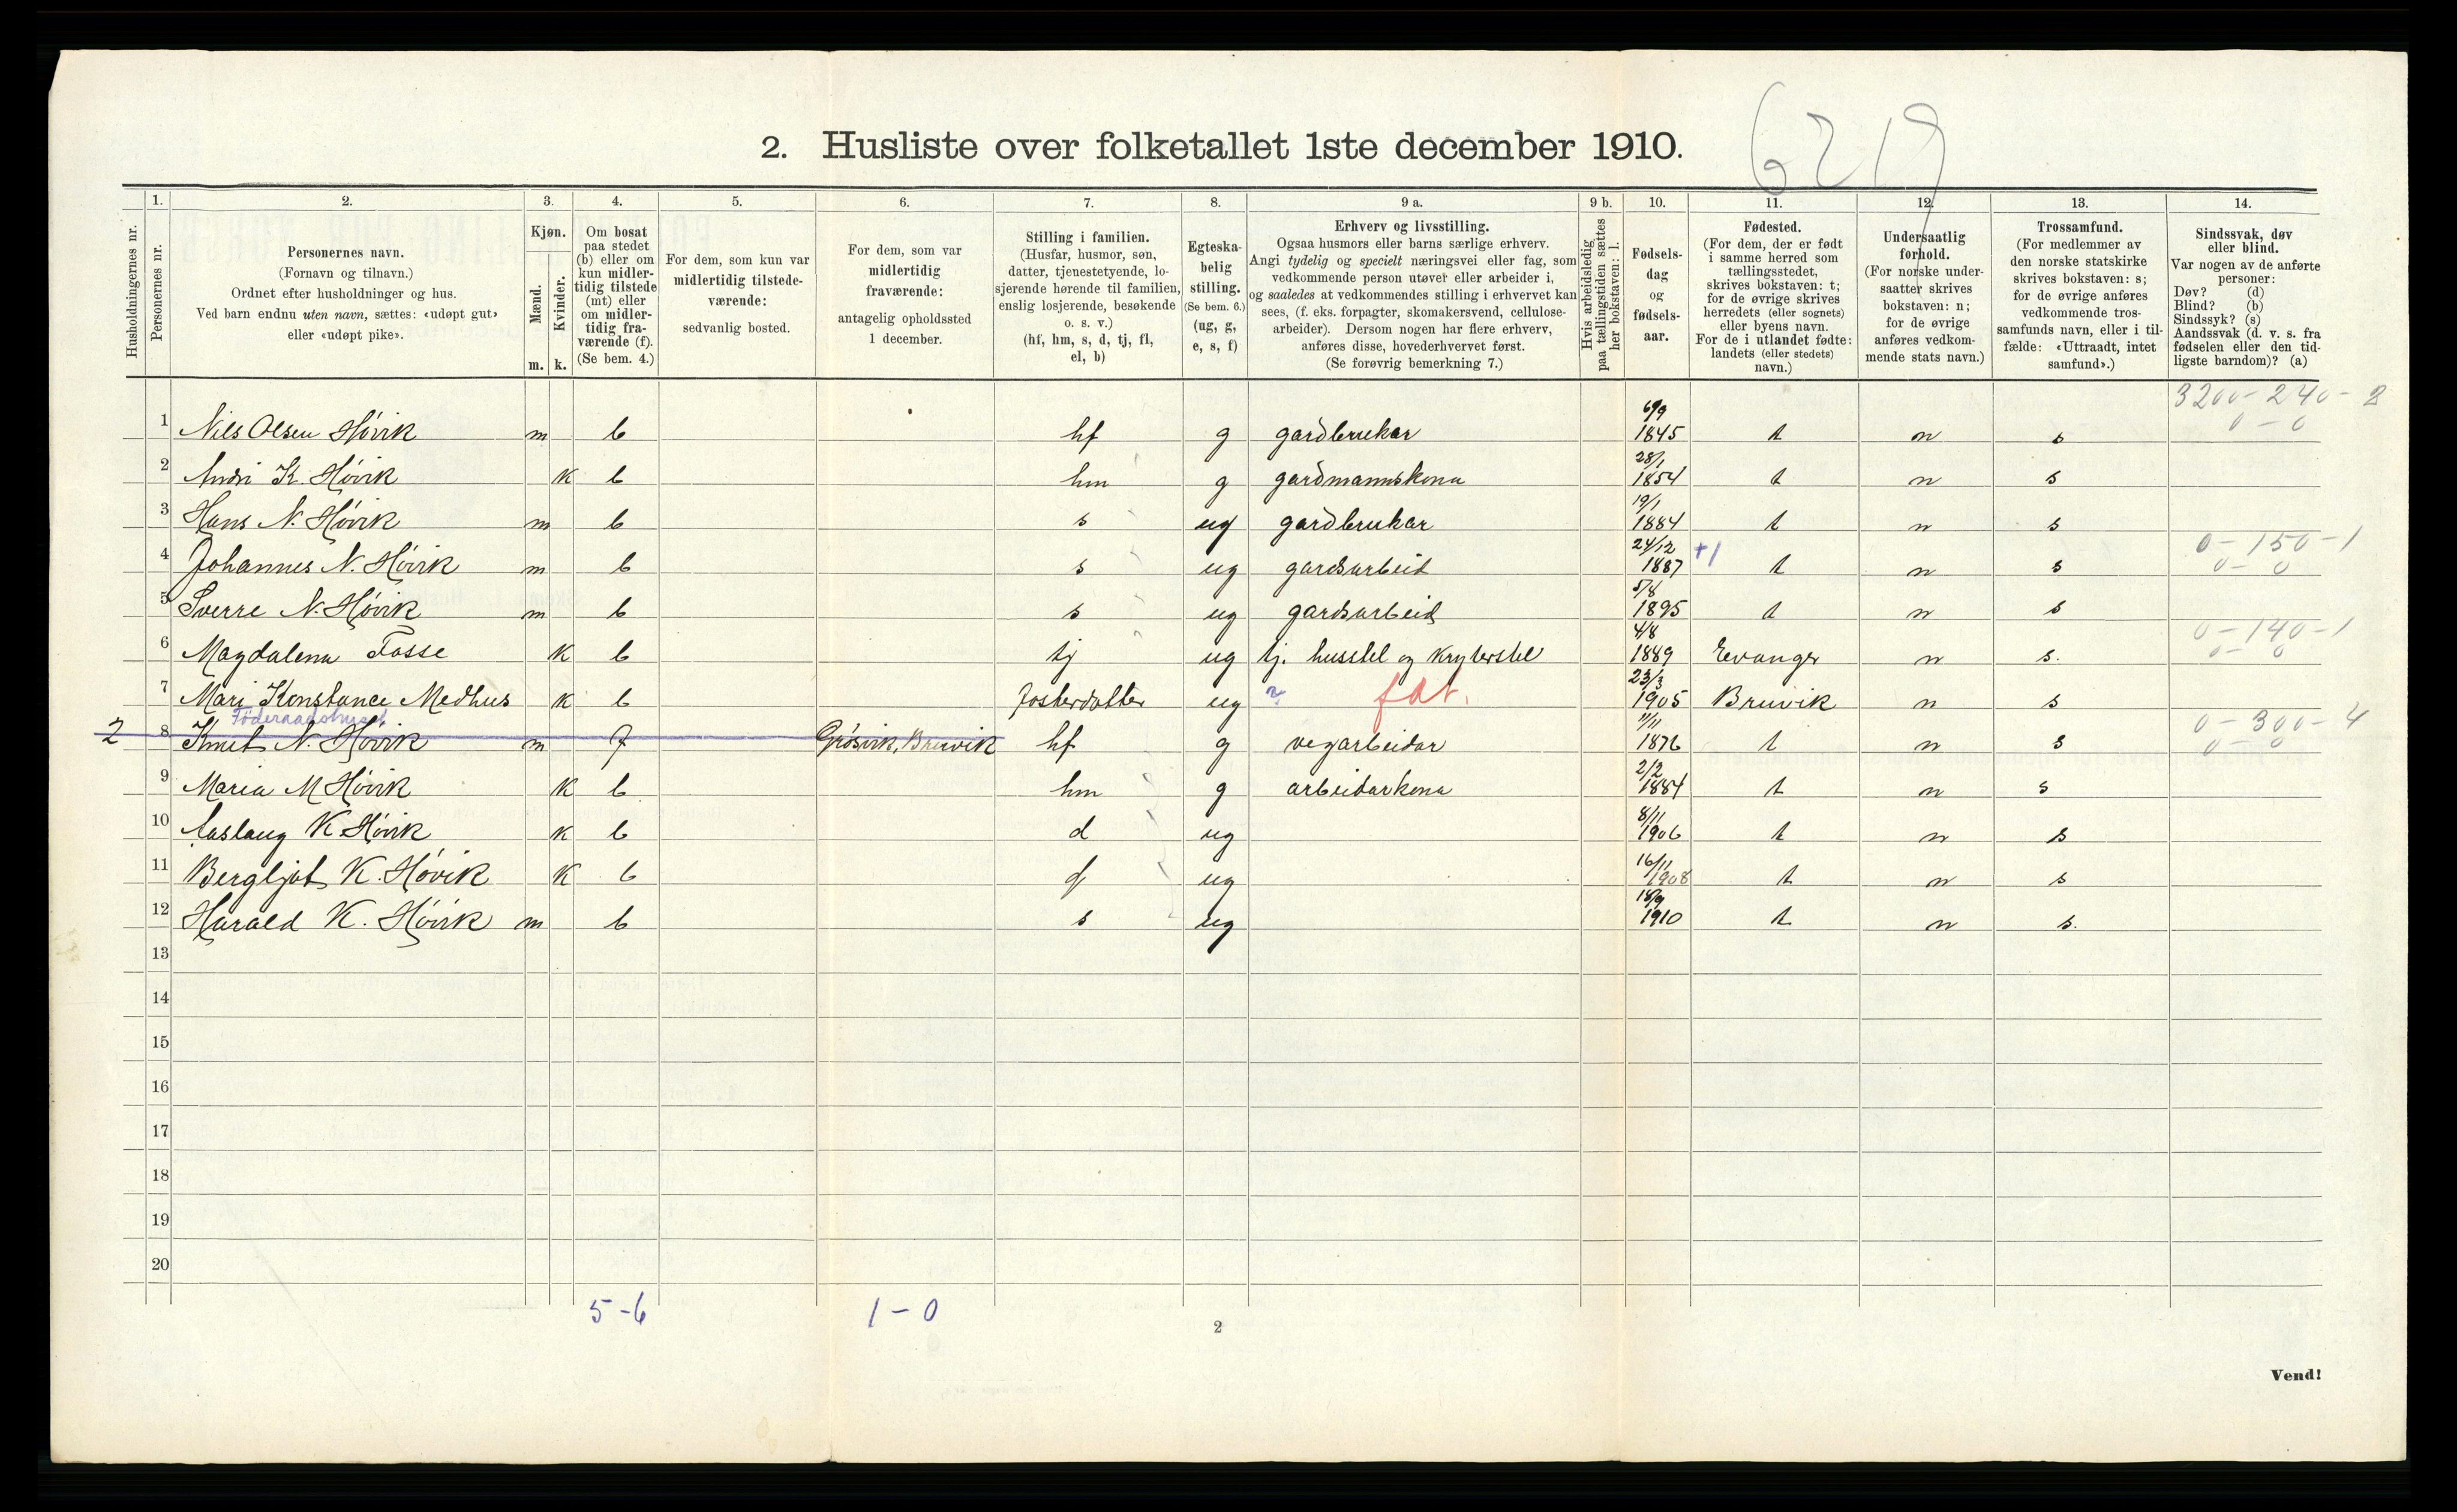 6219
2. Husliste over folketallet 1ste december 1910.
Husholdningernes nr.
1. Personernes nr.
2. Personernes navn. (Fornavn og tilnavn.) Ordnet efter husholdninger og hus. Ved barn endnu uten navn, sættes: «udøpt gut» eller «udøpt pike».
3. Kjøn. Mænd. m. Kvinder. k.
4. Om bosat paa stedet (b) eller om kun midlertidig tilstede (mt) eller om midlertidig fraværende (f). (Se bem. 4.)
5. For dem, som kun var midlertidig tilstedeværende: sedvanlig bosted.
6. For dem, som var midlertidig fraværende: antagelig opholdssted 1 december.
7. Stilling i familien. (Husfar, husmor, søn, datter, tjenestetyende, losjerende hørende til familien, enslig losjerende, besøkende o. s. v.) (hf, hm, s, d, tj, fl, el, b)
8. Egteskabelig stilling. (Se bem. 6.) (ug, g, e, s, f)
9 a. Erhverv og livsstilling. Ogsaa husmors eller barns særlige erhverv. Angi tydelig og specielt næringsvei eller fag, som vedkommende person utøvet eller arbeider i, og saaledes at vedkommendes stilling i erhvervet kan sees, (f. eks. forpagter, skomakersvend, cellulosearbeider). Dersom nogen har flere erhverv, anføres disse, hovederhvervet først. (Se forøvrig bemerkning 7.)
9 b. Hvis arbeidsledig paa tællingstiden sættes her bokstaven: l.
10. Fødselsdag og fødselsaar.
11. Fødested. (For dem, der er født i samme herred som tællingsstedet, skrives bokstaven: t; for de øvrige skrives herredets (eller sognets) eller byens navn. For de i utlandet fødte: landets (eller stedets) navn.)
12. Undersaatlig forhold. (For norske undersaatter skrives bokstaven: n; for de øvrige anføres vedkommende stats navn.)
13. Trossamfund. (For medlemmer av den norske statskirke skrives bokstaven: s; for de øvrige anføres vedkommende trossamfunds navn, eller i tilfælde: «Uttraadt, intet samfund».)
14. Sindssvak, døv eller blind. Var nogen av de anførte personer: Døv? (d) Blind? (b) Sindssyk? (s) Aandssvak (d. v. s. fra fødselen eller den tidligste barndom)? (a)
3200-240-2
0-0
1 Nils Olsen Høvik m b hf g gardbrukar 6/9 1845 t n s
2 Andri K. Høvik k b hm g gardmannskona 28/1 1854 t n s
3 Hans N. Høvik m b s ug gardbrukar 19/1 1884 t n s
0-150-1
0-0
4 Johannes N. Høvik m b s ug gardsarbeid 24/12 1887 +1 t n s
5 Sverre N. Høvik m b s ug gardsarbeid 5/8 1895 t n s
0-140-1
0-0
6 Magdalena Fosse k b tj ug tj. husstel og kryterstel 4/8 1889 Evanger n s.
7 Mari Konstance Medhus k b fosterdotter ug fat. 23/3 1905 Bruvik n s
Föderaadshuset
0-300-4
0-0
2 8 Knut N. Høvik m f Grøsvik, Bruvik hf g vegarbeidar 11/11 1876 t n s
9 Maria M Høvik k b hm g arbeidarkona 2/2 1884 t n s
10 Aaslaug K Høvik k b d ug 8/11 1906 t n s
11 Bergljot K. Høvik k b d ug 16/11 1908 t n s
12 Harald K. Høvik m b s ug 18/9 1910 t n s.
13
14
15
16
17
18
19
20
5-6 1-0
2
Vend!